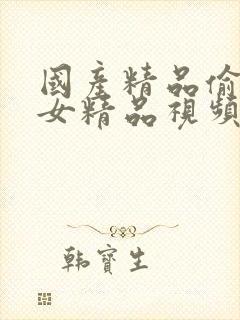 國產精品偷
女精品視頻
韩寶生